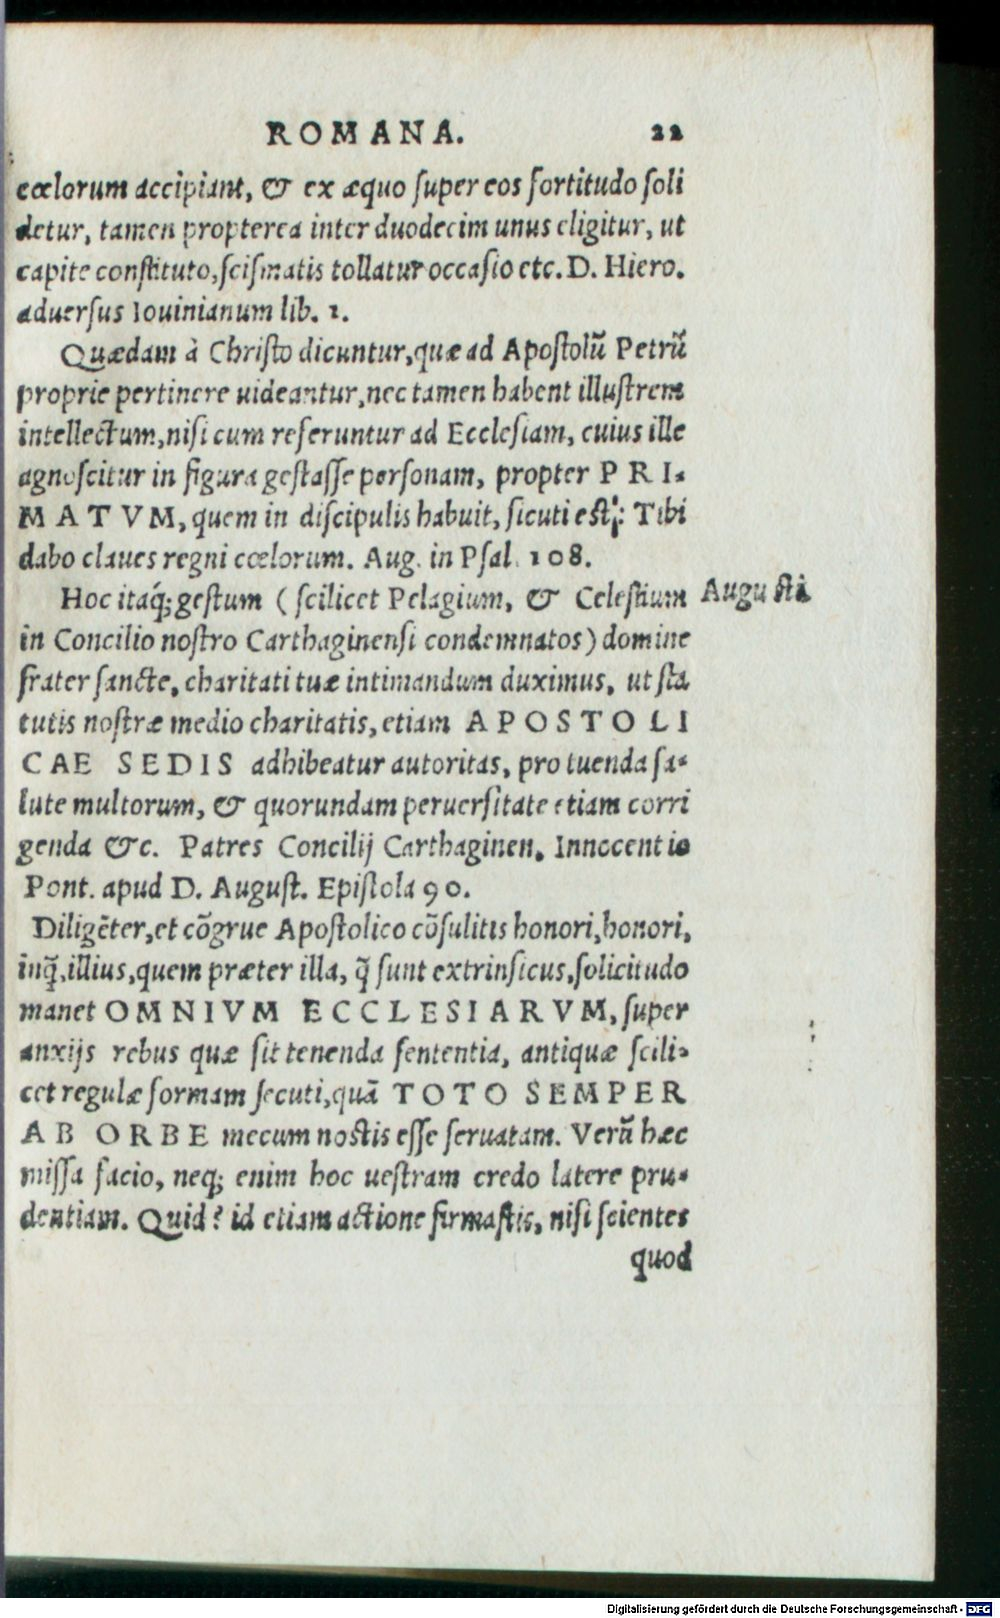 ROMANA. 22
cœlorum accipiant, & ex æquo ſuper eos fortitudo ſoli
detur, tamen propterea inter duodecim unus eligitur, ut
capite conſtituto, ſciſmatis tollatur occaſio etc. D. Hiero.
aduerſus Iouinianum lib. 1.
Quædam à Chriſto dicuntur, quæ ad Apoſtolũ Petrũ
proprie pertinere uideantur, nec tamen habent illuſtrem
intellectum, niſi cum referuntur ad Eccleſiam, cuius ille
agnoſcitur in figura geſtaſſe perſonam, propter PRI-
MATVM, quem in diſcipulis habuit, ſicuti eſt: Tibi
dabo claues regni cœlorum. Aug. in Pſal. 108.
Hoc itaq́; geſtum (ſcilicet Pelagium, & Celeſtium
Auguſti
in Concilio noſtro Carthaginenſi condemnatos) domine
frater ſancte, charitati tuæ intimandum duximus, ut ſta
tutis noſtræ medio charitatis, etiam APOSTOLI
CAE SEDIS adhibeatur autoritas, pro tuenda ſa-
lute multorum, & quorundam peruerſitate etiam corri
genda &c. Patres Concilij Carthaginen. Innocentio
Pont. apud D. Auguſt. Epiſtola 90.
Diligẽter, et cõgrue Apoſtolico cõſulitis honori, honori,
inq̃, illius, quem præter illa, q̃ ſunt extrinſicus, ſolicitudo
manet OMNIVM ECCLESIARVM, ſuper
anxijs rebus quæ ſit tenenda ſententia, antiquæ ſcili-
cet regulæ formam ſecuti, quã TOTO SEMPER
AB ORBE mecum noſtis eſſe ſeruatam. Verũ hæc
miſſa facio, neq; enim hoc ueſtram credo latere pru-
dentiam. Quid? id etiam actione firmaſtis, niſi ſcientes
quod
Digitalisierung gefördert durch die Deutsche Forschungsgemeinschaft - DFG